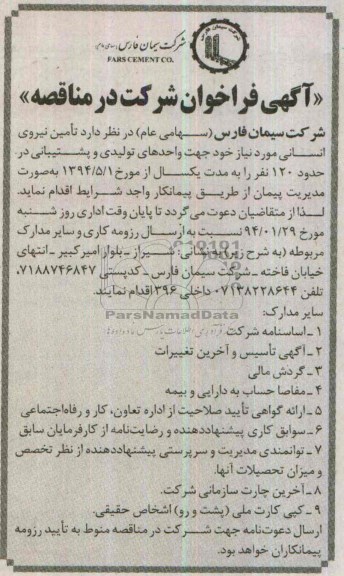 شرکت سیمان فارس (سهامی عام)
FARS CEMENT CO.
«آگهی فراخوان شرکت در مناقصه»
شرکت سیمان فارس (سهامی عام) در نظر دارد تأمین نیروی
انسانی مورد نیاز خود جهت واحدهای تولیدی و پشتیبانی در
حدود ۱۲۰ نفر را به مدت یکسال از مورخ ۱۳۹۴/۵/۱ به‌صورت
مدیریت پیمان از طریق پیمانکار واجد شرایط اقدام نماید.
لذا از متقاضیان دعوت می‌گردد تا پایان وقت اداری روز شنبه
مورخ ۹۴/۰۱/۲۹ نسبت به ارسال رزومه کاری و سایر مدارک
مربوطه (به شرح زیر) به نشانی: شیراز ـ بلوار امیرکبیر ـ انتهای
خیابان فاخته ـ شرکت سیمان فارس ـ کدپستی ۷۱۸۸۷۴۶۸۴۷،
تلفن ۰۷۱۳۸۲۲۸۶۴۴ داخلی ۳۹۶ اقدام نمایند.
سایر مدارک:
۱ ـ اساسنامه شرکت
ParsNamadData
۲ ـ آگهی تأسیس و آخرین تغییرات
۳ ـ گردش مالی
۴ ـ مفاصا حساب به دارایی و بیمه
۵ ـ ارائه گواهی تأیید صلاحیت از اداره تعاون، کار و رفاه‌اجتماعی
۶ ـ سوابق کاری پیشنهاددهنده و رضایت‌نامه از کارفرمایان سابق
۷ ـ توانمندی مدیریت و سرپرستی پیشنهاددهنده از نظر تخصص
و میزان تحصیلات آنها.
۸ ـ آخرین چارت سازمانی شرکت.
۹ ـ کپی کارت ملی (پشت و رو) اشخاص حقیقی.
ارسال دعوت‌نامه جهت شرکت در مناقصه منوط به تأیید رزومه
پیمانکاران خواهد بود.